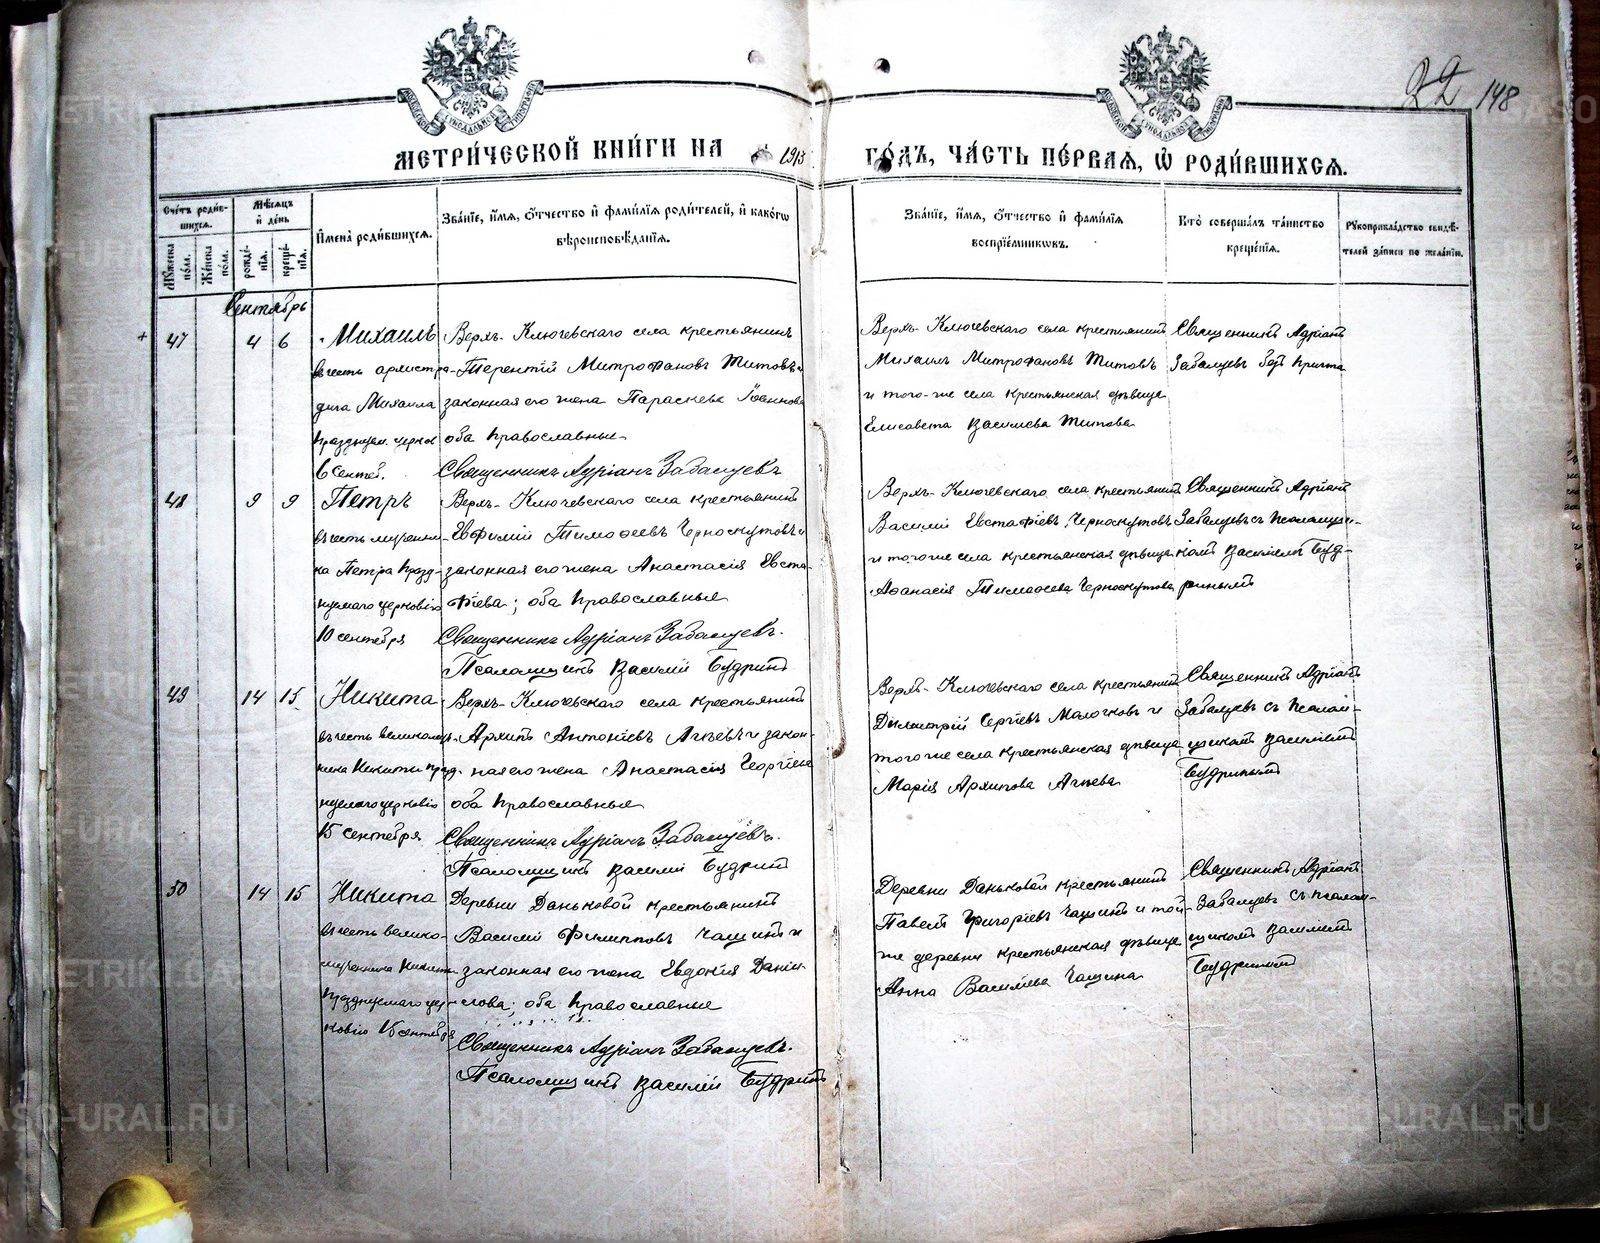 22 148
МЕТРИ́ЧЕСКОЙ КНИ́ГИ НА 1913 ГО́ДЪ, ЧА́СТЬ ПЕ́РВАЯ, Ѡ РОДИ́ВШИХСЯ.
Сче́тъ роди́в-
шихся.
Му́жеска по́ла.
Же́нска по́ла.
Мѣ́сяцъ и де́нь
рожде́-
нїя.
креще́-
нїя.
Имена̀ роди́вшихся.
Зва́нїе, и́мя, о́тчество и фами́лїя роди́телей, и како́гѡ
вѣроисповѣ́данїя.
Зва́нїе, и́мя, о́тчество и фами́лїя
воспрїе́мниковъ.
Кто̀ соверша́лъ та́инство
креще́нїя.
Рукоприкла́дство свидѣ́-
телей за́писи по жела́нїю.
Сентябрь
47 4 6 Михаилъ
въ честь архистра-
тига Михаила
празднуем. церков
6 сентяб.
Верхъ-Ключевскаго села крестьянинъ
Терентій Митрофановъ Титовъ и
законная его жена Параскева Іоаннова
оба православные
Священникъ Адріанъ Забалуевъ
Верхъ-Ключевскаго села крестьянинъ
Михаилъ Митрофановъ Титовъ
и того-же села крестьянская дѣвица
Елисавета Васильева Титова
Священникъ Адріанъ
Забалуевъ безъ причта
48 9 9 Петръ
въ честь мученни-
ка Петра празд-
нуемаго церковію
10 сентября
Верхъ-Ключевскаго села крестьянинъ
Евфимій Тимофеевъ Черноскутовъ и
законная его жена Анастасія Евста-
фіева; оба православные
Священникъ Адріанъ Забалуевъ.
Псаломщикъ Василій Будринъ
Верхъ-Ключевскаго села крестьянинъ
Василій Евстафіевъ Черноскутовъ
и того же села крестьянская дѣвица
Афанасія Тимофеева Черноскутова
Священникъ Адріанъ
Забалуевъ съ псаломщи-
комъ Василіемъ Буд-
ринымъ
49 14 15 Никита
въ честь великому-
ника Никиты празд-
нуемаго церковію
15 сентября
Верхъ-Ключевскаго села крестьянинъ
Архипъ Антоніевъ Агѣевъ и закон-
ная его жена Анастасія Георгіева
оба православные
Священникъ Адріанъ Забалуевъ.
Псаломщикъ Василій Будринъ
Верхъ-Ключевскаго села крестьянинъ
Димитрій Сергіевъ Молочковъ и
того же села крестьянская дѣвица
Марія Архипова Агѣева
Священникъ Адріанъ
Забалуевъ съ псалом-
щикомъ Василіемъ
Будринымъ
50 14 15 Никита
въ честь велико-
мученника Никиты
празднуемаго цер-
ковію 15 сентября
Деревни Даньковой крестьянинъ
Василій Филипповъ Чащинъ и
законная его жена Евдокія Даніи-
лова; оба православные
Священникъ Адріанъ Забалуевъ.
Псаломщикъ Василій Будринъ
Деревни Даньковой крестьянинъ
Павелъ Григоріевъ Чащинъ и той-
же деревни крестьянская дѣвица
Анна Васильева Чащина
Священникъ Адріанъ
Забалуевъ съ псалом-
щикомъ Василіемъ
Будринымъ
METRIKI.GASO-URAL.RU